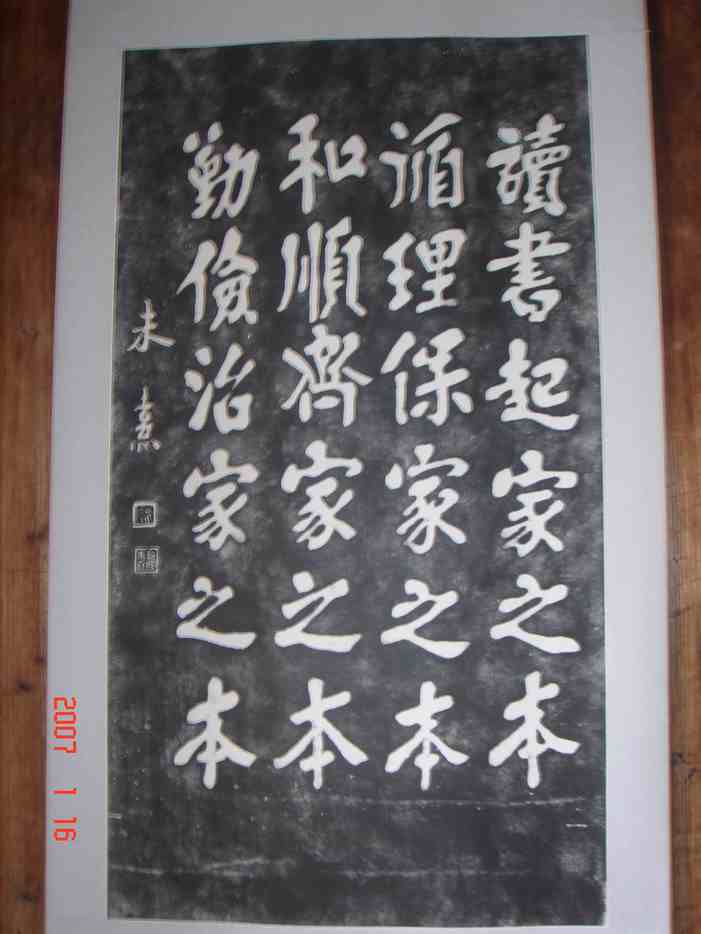 讀書起家之本
循理保家之本
和順齊家之本
勤儉治家之本
朱熹
2007 1 16